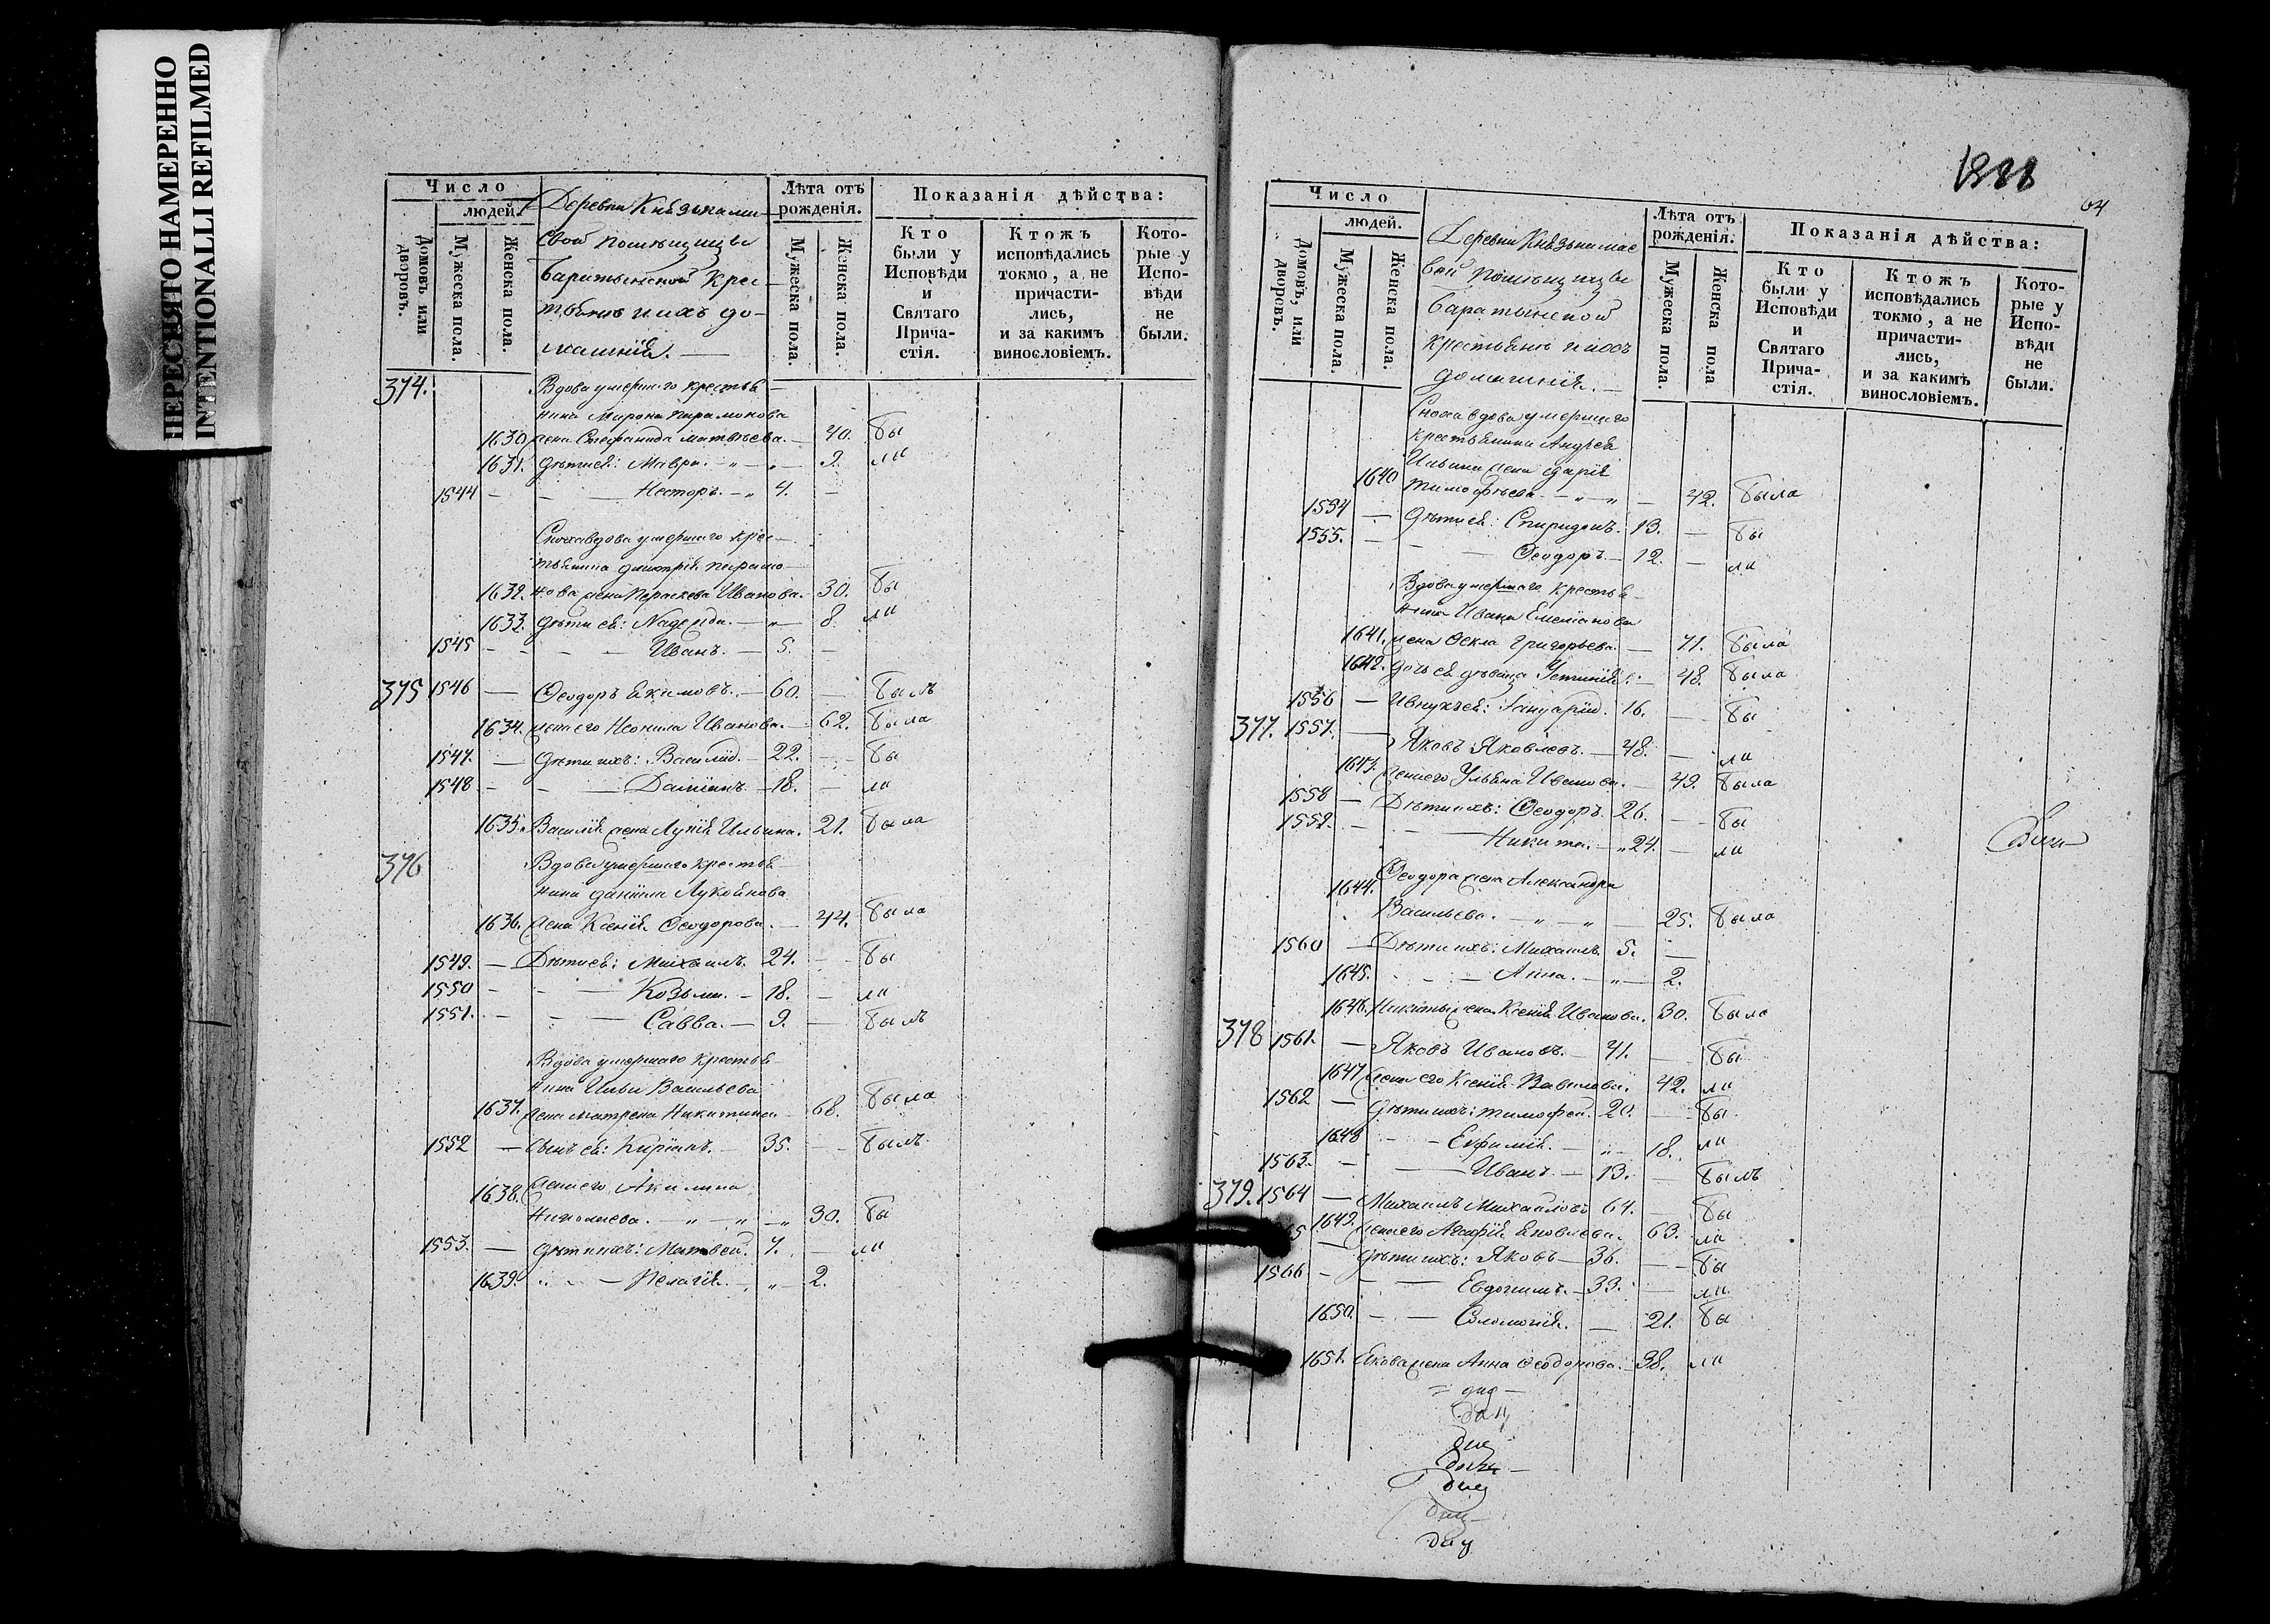 НЕРЕСНЯТО НАМЕРЕННО
INTENTIONALLI REFILMED
Число
людей.
Домовъ или дворовъ.
Мужеска пола.
Женска пола.
Деревни Княземами
свой помѣщицы
Баратынской крес-
тьяне и ихъ до-
машнія.
Лѣта отъ рожденія.
Мужеска пола.
Женска пола.
Показанія дѣйства:
Кто были у Исповѣди и Святаго Прича-стія.
Ктожъ исповѣдались токмо, а не причасти-лись, и за какимъ винословіемъ.
Кото-рые у Испо-вѣди не были.
374. Вдова умершаго крестья-
нина Мирона Парамонова
1630 жена Стефанида Матвѣева. 40. бы
1631. Дѣти ея: Мавра. 9. ли
1544 Несторъ. 4.
Сноха вдова умершаго крес-
тьянина Димитрія Парамо-
1632. нова жена Параскева Иванова. 30. бы
1633. Дѣти ея: Надежда. 8. ли
1545 Иванъ. 5.
375 1546 Ѳеодоръ Екимовъ. 60. былъ
1634. жена его Неонила Иванова. 62. была
1547. Дѣти ихъ: Василій. 22. бы
1548 Даміанъ 18. ли
1635. Василія жена Лукія Ильина. 21. была
376 Вдова умершаго крестья-
нина Даніила Лукоянова
1636. жена Ксенія Ѳеодорова. 44. была
1549. Дѣти ея: Михаилъ. 24. бы
1550 Козьма. 18. ли
1551. Савва. 9. былъ
Вдова умершаго крестья
нина Ильи Васильева
1637. жена Матрена Никитина 68. была
1552 Сынъ ея: Киріанъ. 35. былъ
1638. жена его Акилина
Николаева. 30. бы
1553. Дѣти ихъ: Матвей. 7. ли
1639. Пелагія. 2.
64
Число
людей.
Домовъ, или дворовъ.
Мужеска пола.
Женска пола.
Деревни Княземас
вой помѣщицы
Баратынской
крестьяне и ихъ
домашнія.
Лѣта отъ рожденія.
Мужеска пола.
Женска пола
Показанія дѣйства:
Кто были у Исповѣди и Святаго Прича-стія.
Ктожъ исповѣдались токмо, а не причасти-лись, и за какимъ винословіемъ.
Кото-рые у Испо-вѣди не были.
Сноха вдова умершаго
крестьянина Андрея
Ильина жена Дарія
1640 Тимофѣева. 42. была
1554 Дѣти ея: Спиридонъ. 13. бы
1555. Ѳеодоръ. 12. ли
Вдова умершаго крестья-
нина Ивана Емеліанова
1641. жена Ѳекла Григорьева. 71. была
1642. Дочь ея дѣвица Устинія: 48. была
1556 И внукъ ея: Іануарій. 16. бы
377. 1557. Яковъ Яковлевъ. 48. ли
1643. жена его Ульяна Иванова. 49. была
1558 Дѣти ихъ: Ѳеодоръ. 26. бы
1559. Никита. 24. ли
1644. Ѳеодора жена Александра
Васильева. 25. была
1560 Дѣти ихъ: Михаилъ. 5.
1645. Анна. 2.
1646. Никиты жена Ксенія Иванова. 30. была
378 1561. Яковъ Ивановъ. 41. бы
1647 жена его Ксенія Вавилова. 42. ли
1562 Дѣти ихъ: Тимофей. 20. бы
1648 Евфимія. 18. ли
1563. Иванъ 13. былъ
379. 1564 Михаилъ Михайловъ 64. бы
1649. жена его Агафія Яковлева. 63. ли
65 Дѣти ихъ: Яковъ 36. бы
1566 Евдокимъ. 33. ли
1650. Соломонія. 21. бы
1651. Якова жена Анна Ѳеодорова. 38. ли